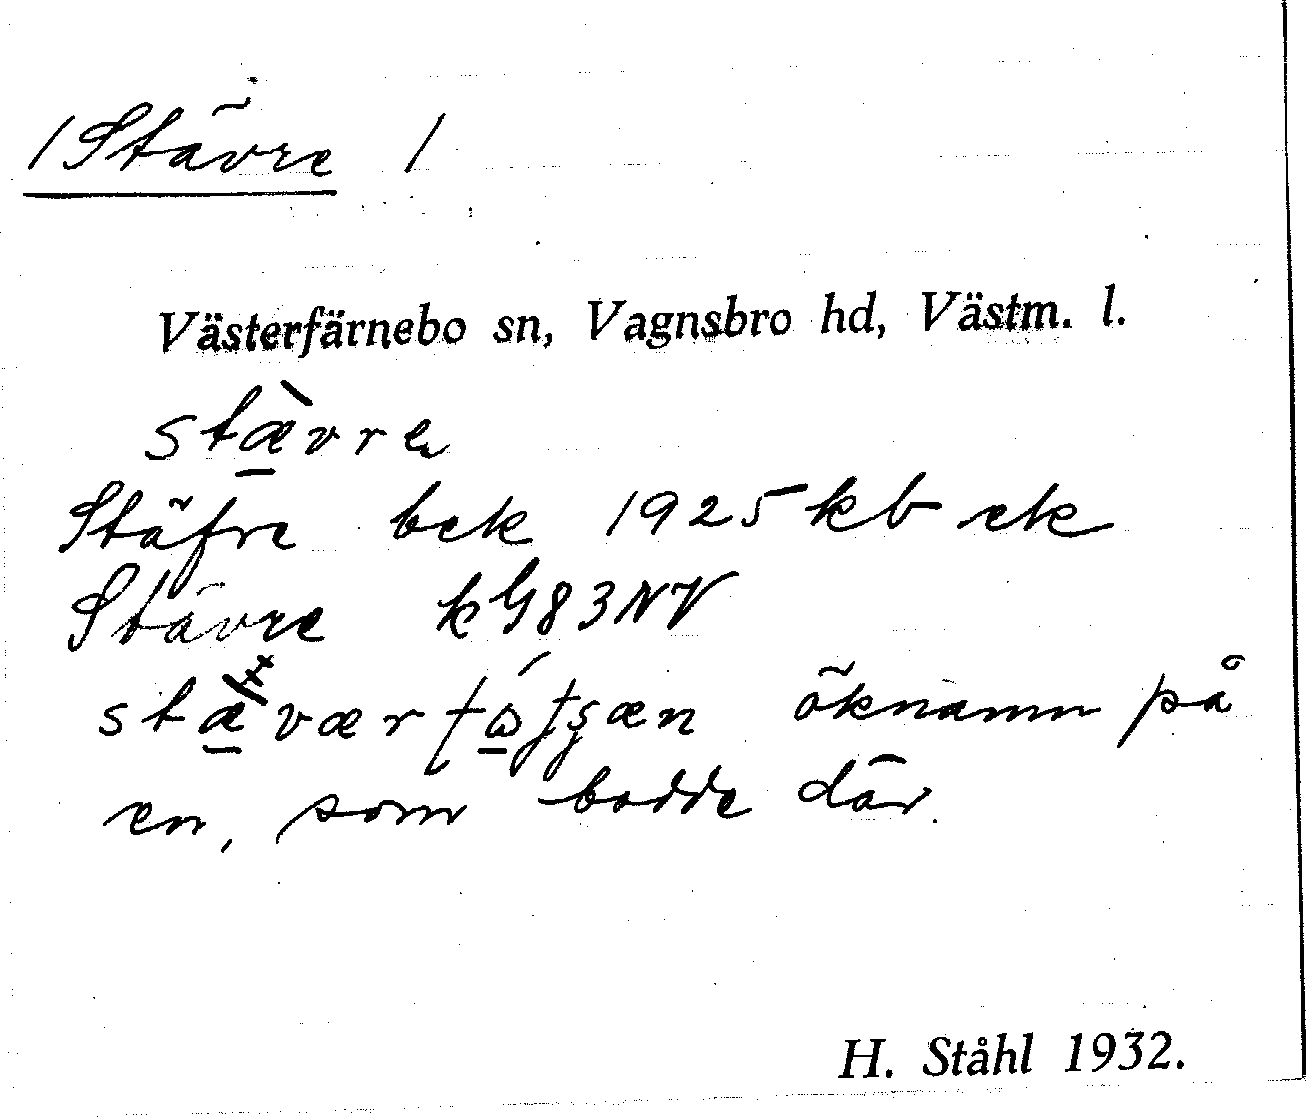 /Stävre /
Västerfärnebo sn, Vagnsbro hd, Västm. l.
stæ̠̀vre
Stäfre bek 1925 kb ek
Stävre kG83NV
öknamn på
en, som bodde där.
H. Ståhl 1932.